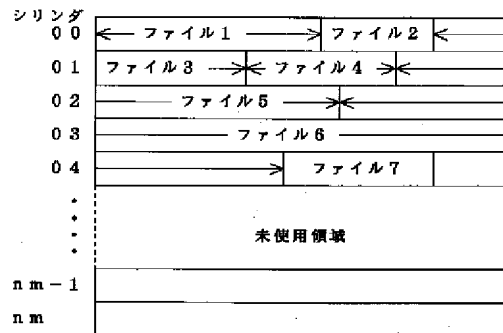 シリンダ
00 ファイル1 ファイル2
01 ファイル3 ファイル4
02 ファイル5
03 ファイル6
04 ファイル7
未使用領域
nm-1
nm